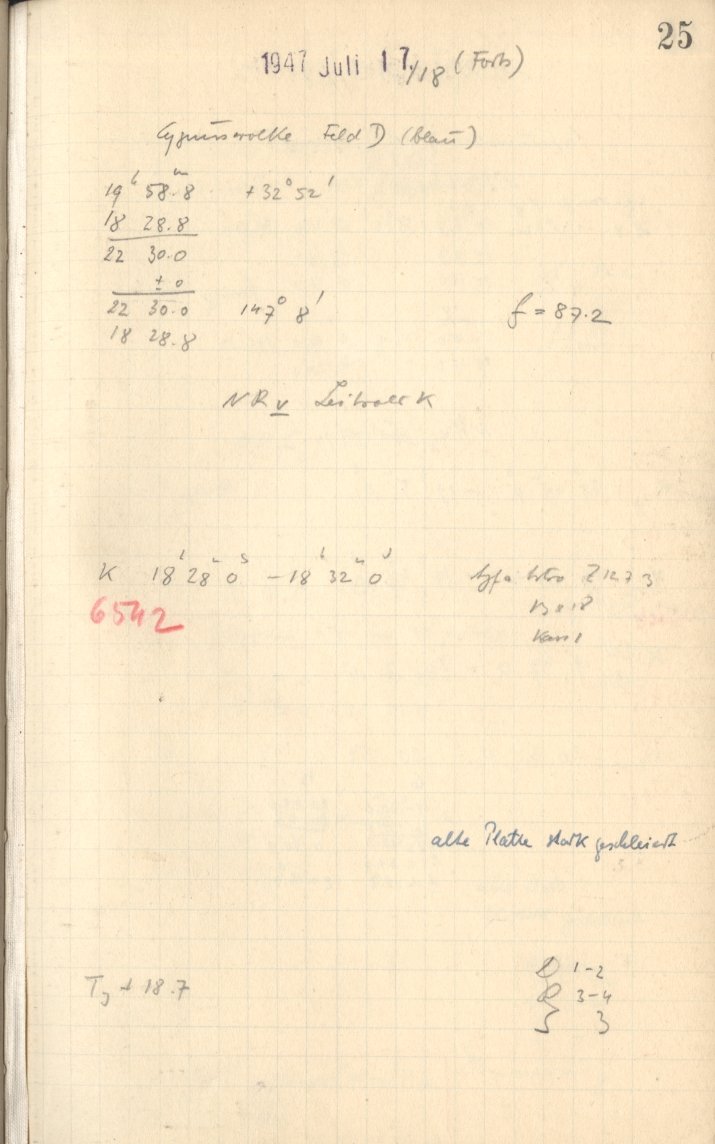 25
1947 Juli 17./18 (Forts)
Cygnuswolke Feld D (blau)
19h 58m.8 +32° 52'
18 28.8
22 30.0
± 0
22 30.0 147° 8'
f = 87.2
18 28.8
NR v
K 18h 28m 0s - 18h 32m 0s Agfa Astro Z 1273
6542
13 x 18
Kass 1
alte Platte stark geschleiert
Ty + 18.7
1-2
3-4
3